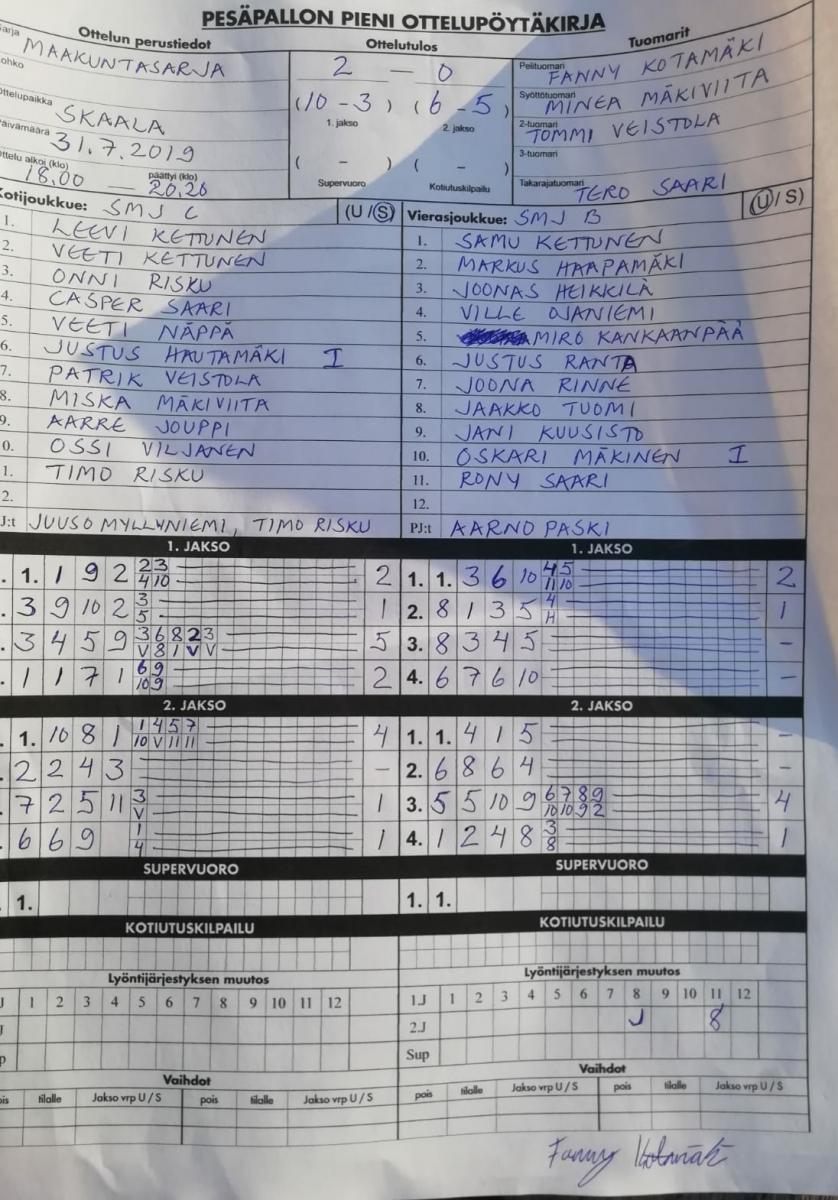 PESÄPALLON PIENI OTTELUPÖYTÄKIRJA
Sarja Ottelun perustiedot Ottelutulos Tuomarit
MAAKUNTASARJA 2 — 0 Pelituomari FANNY KOTAMÄKI
Lohko
Ottelupaikka SKAALA (10 - 3) (6 - 5) Syöttötuomari MINEA MÄKIVIITA
1. jakso 2. jakso 2-tuomari TOMMI VEISTOLA
Päivämäärä 31.7.2019 3-tuomari
Ottelu alkoi (klo) 18.00 — päättyi (klo) 20.20 ( - ) ( - )
Supervuoro Kotiutuskilpailu Takarajatuomari TERO SAARI
Kotijoukkue: SMJ C (U/S) Vierasjoukkue: SMJ B (U/S)
1. LEEVI KETTUNEN 1. SAMU KETTUNEN
2. VEETI KETTUNEN 2. MARKUS HAAPAMÄKI
3. ONNI RISKU 3. JOONAS HEIKKILÄ
4. CASPER SAARI 4. VILLE OJANIEMI
5. VEETI NÄPPÄ 5. MIRO KANKAANPÄÄ
6. JUSTUS HAUTAMÄKI I 6. JUSTUS RANTA
7. PATRIK VEISTOLA 7. JOONA RINNE
8. MISKA MÄKIVIITA 8. JAAKKO TUOMI
9. AARRE JOUPPI 9. JANI KUUSISTO
0. OSSI VILJANEN 10. OSKARI MÄKINEN I
1. TIMO RISKU 11. RONY SAARI
2. 12.
J:t JUUSO MYLLYNIEMI, TIMO RISKU PJ:t AARNO PASKI
1. JAKSO 1. JAKSO
. 1. 1 9 2 2 3 2 1. 1. 3 6 10 4 5 2
4 10 11 10
. 3 9 10 2 3 1 2. 8 1 3 5 4 1
5 H
. 3 4 5 9 3 6 8 2 3 5 3. 8 3 4 5 -
V 8 1 V V
. 1 1 7 1 6 9 2 4. 6 7 6 10 -
10 9
2. JAKSO 2. JAKSO
. 1. 10 8 1 1 4 5 7 4 1. 1. 4 1 5 -
10 V 11 11
. 2 2 4 3 - 2. 6 8 6 4 -
. 7 2 5 11 3 1 3. 5 5 10 9 6 7 8 9 4
V 10 10 9 2
. 6 6 9 1 1 4. 1 2 4 8 3 1
4 8
SUPERVUORO SUPERVUORO
. 1. 1. 1.
KOTIUTUSKILPAILU KOTIUTUSKILPAILU
Lyöntijärjestyksen muutos Lyöntijärjestyksen muutos
J 1 2 3 4 5 6 7 8 9 10 11 12 1.J 1 2 3 4 5 6 7 8 9 10 11 12
J 2.J J 8
p Sup
Vaihdot Vaihdot
ois tilalle Jakso vrp U / S pois tilalle Jakso vrp U / S pois tilalle Jakso vrp U / S pois tilalle Jakso vrp U / S
Fanny Kotamäki